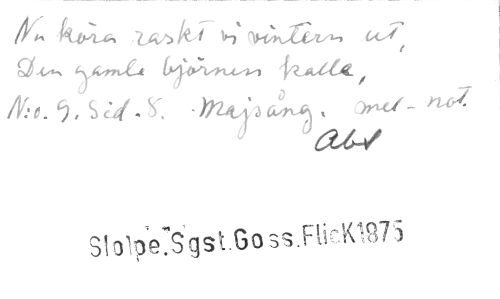 Nu köra raskt vi vintern ut,
Den gamle björnen kalla,
N:o. 9. Sid. 8. Majsång. mel-not.
Abt
Stolpe. Sgst. Goss. Flick 1875